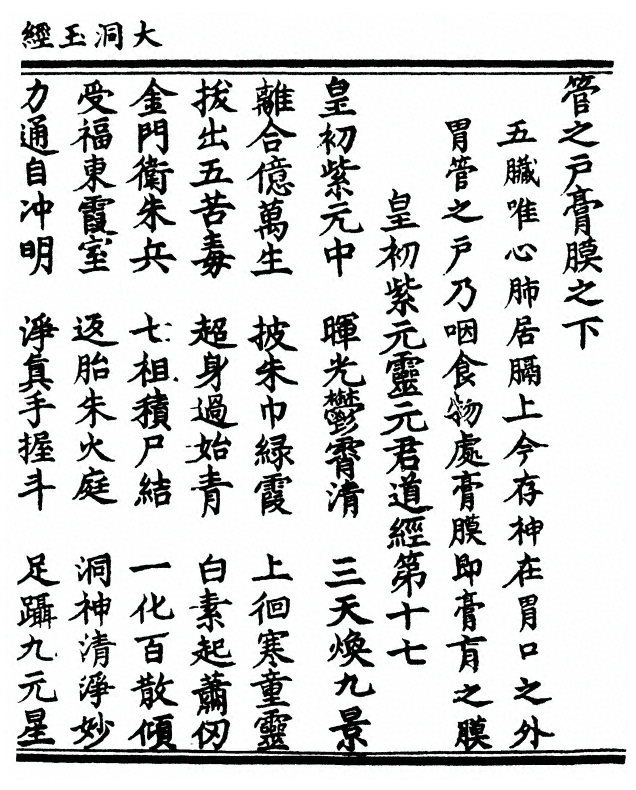 大洞玉經
管之戸膏膜之下
五臟唯心肺居膈上今存神在胃口之外
胃管之戸乃咽食物處膏膜即膏肓之膜
皇初紫元靈元君道經第十七
皇初紫元中 暉光鬱霄清 三天煥九景
離合億萬生 披朱巾緑霞 上徊寒童靈
拔出五苦毒 超身過始青 白素起蕭仞
金門衛朱兵 七祖積尸結 一化百散傾
受福東霞室 返胎朱火庭 洞神清淨妙
力通自冲明 淨真手握斗 足躡九元星